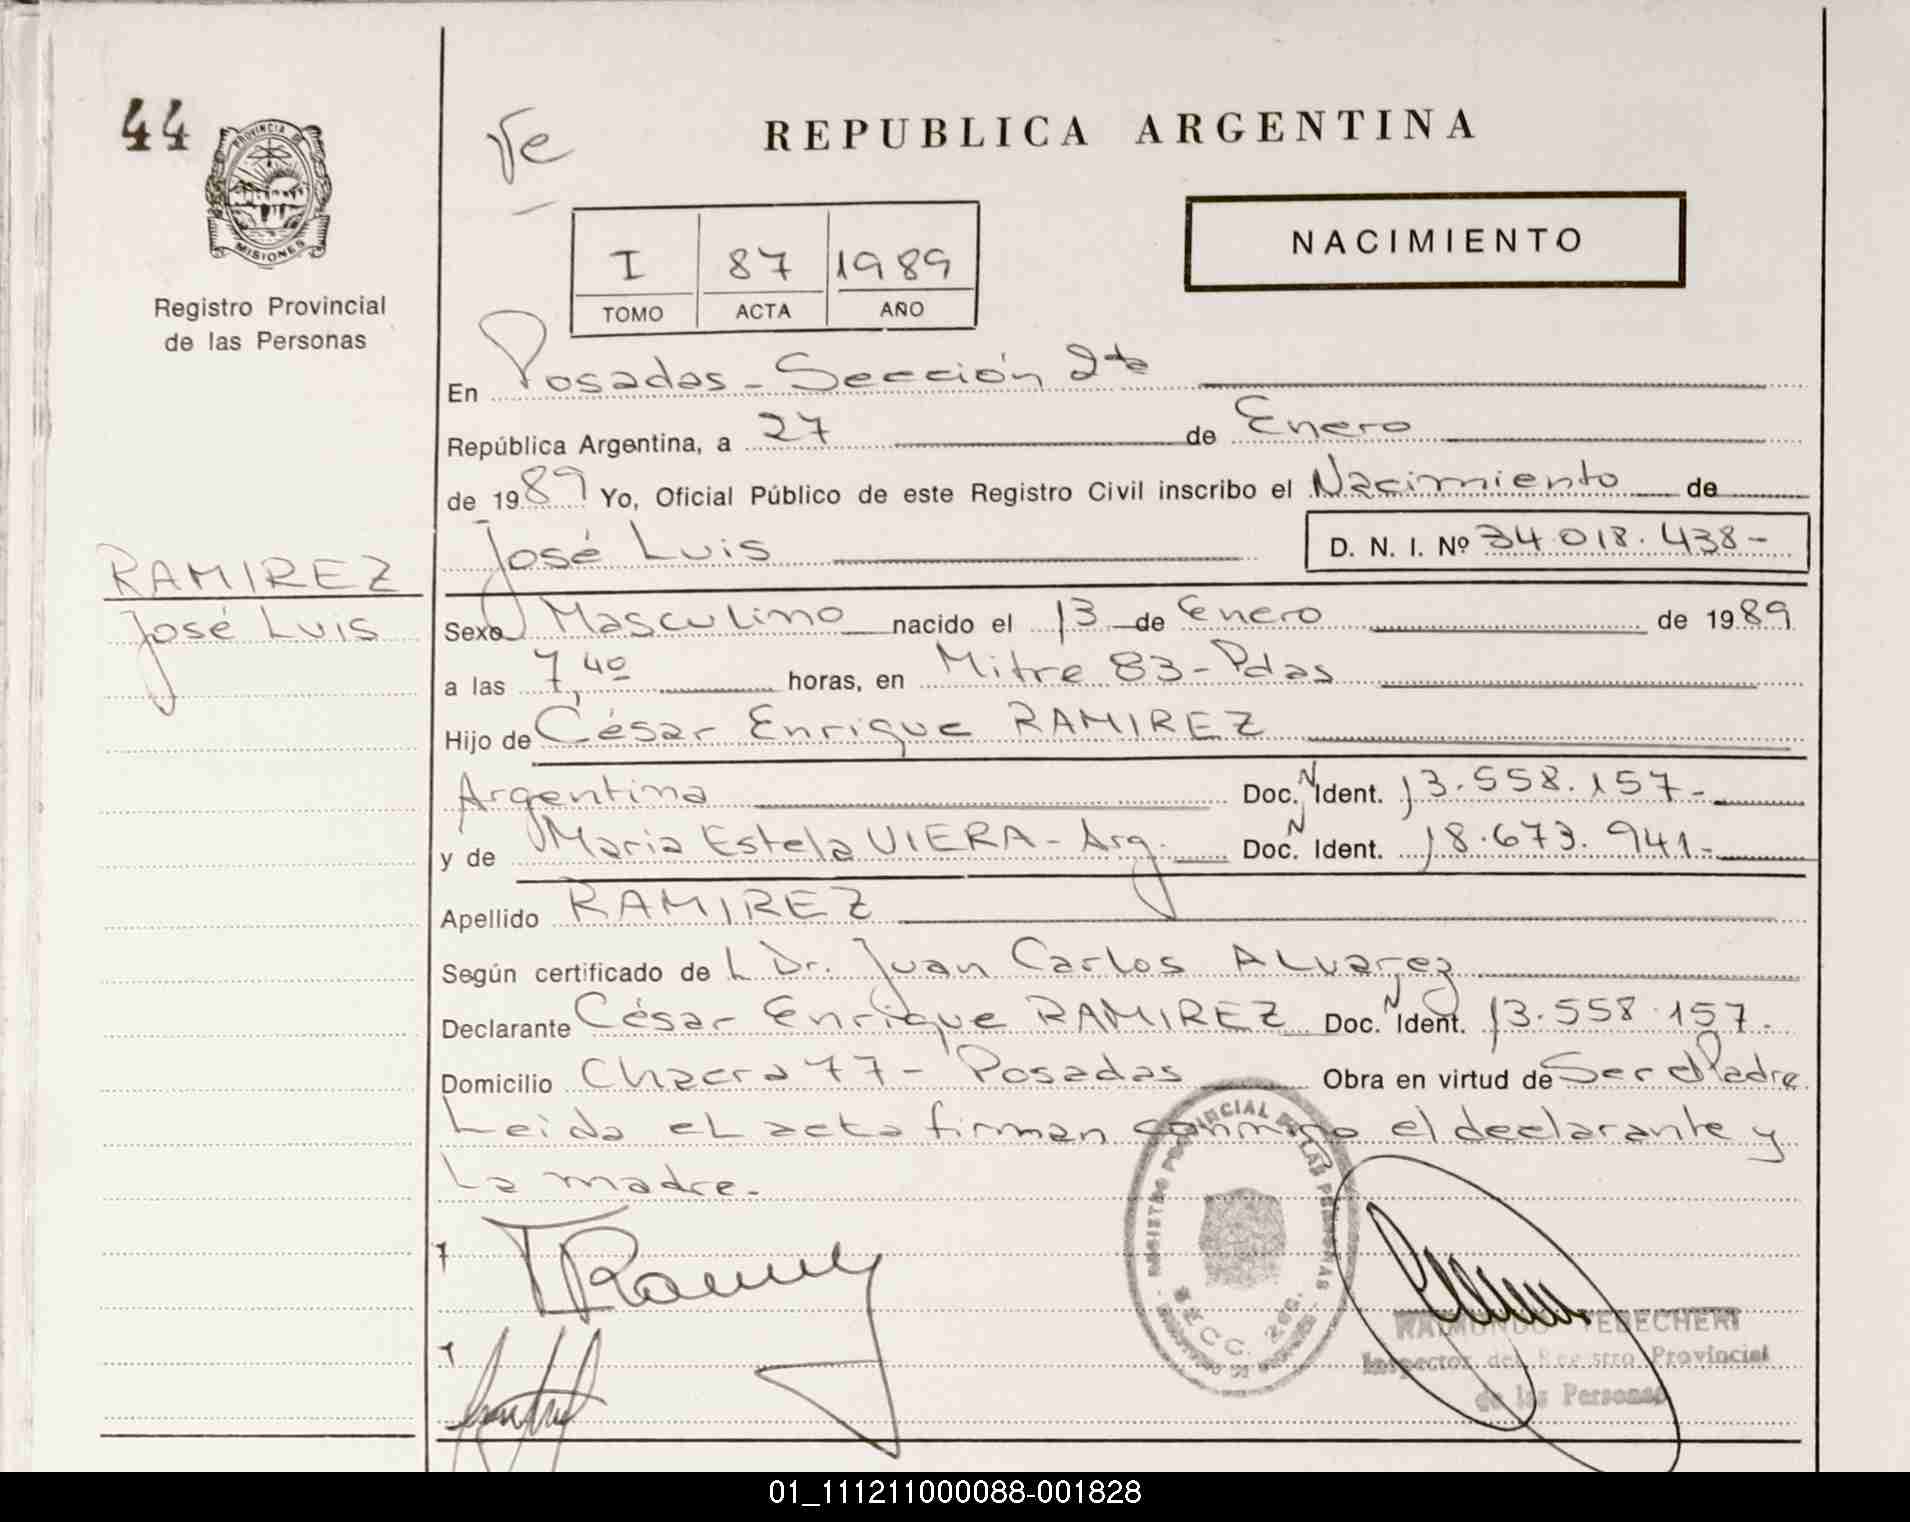 44
PROVINCIA DE
MISIONES
Registro Provincial
de las Personas
REPUBLICA ARGENTINA
NACIMIENTO
I 87 1989
TOMO ACTA AÑO
En Posadas - Sección 2da
República Argentina, a 27 de Enero
de 1989 Yo, Oficial Público de este Registro Civil inscribo el Nacimiento de
José Luis D. N. I. Nº 34.018.438-
RAMIREZ
José Luis
Sexo Masculino nacido el 13 de Enero de 1989
a las 7,40 horas, en Mitre 83 - Pdas
Hijo de César Enrique RAMIREZ
Argentina Doc. N Ident. 13.558.157-
y de Maria Estela VIERA - Arg. Doc. N Ident. 18.673.941-
Apellido RAMIREZ
Según certificado de L Dr. Juan Carlos ALvarez
Declarante César Enrique RAMIREZ Doc. N Ident. 13.558.157.
Domicilio Chacra 77 - Posadas Obra en virtud de Ser el Padre
Leida el acta firman conmigo el declarante y
la madre.
REGISTRO PROVINCIAL DE LAS PERSONAS
SECC. 2da.
RAIMUNDO YEDECHERI
Inspector del Registro Provincial
de las Personas
01_111211000088-001828